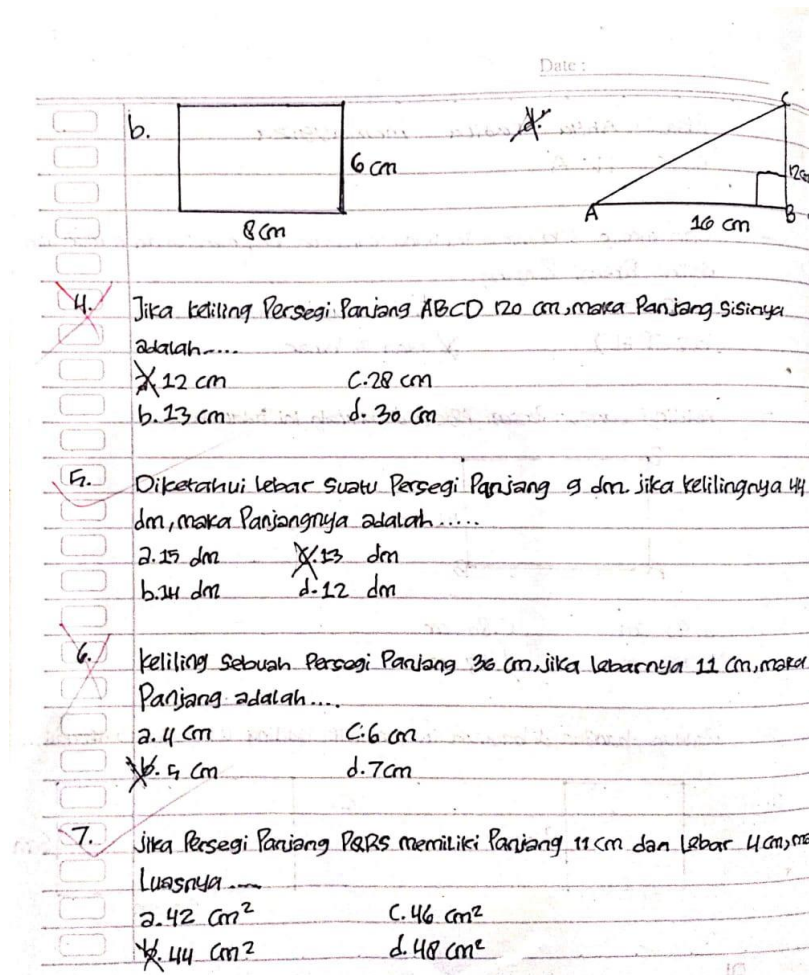 Date :
b.
6 cm
8 cm
d.
C
12 cm
A
16 cm
B
4. Jika keliling Persegi Panjang ABCD 120 cm, maka Panjang sisinya
adalah....
a. 12 cm c. 28 cm
b. 13 cm d. 30 cm
5. Diketahui lebar suatu Persegi Panjang 9 dm. jika kelilingnya 44
dm, maka Panjangnya adalah.....
a. 15 dm c. 13 dm
b. 14 dm d. 12 dm
6. Keliling sebuah Persegi Panjang 36 cm, jika lebarnya 11 cm, maka
Panjang adalah....
a. 4 cm c. 6 cm
b. 5 cm d. 7 cm
7. Jika Persegi Panjang PQRS memiliki Panjang 11 cm dan lebar 4 cm, ma
Luasnya....
a. 42 cm² c. 46 cm²
b. 44 cm² d. 48 cm²